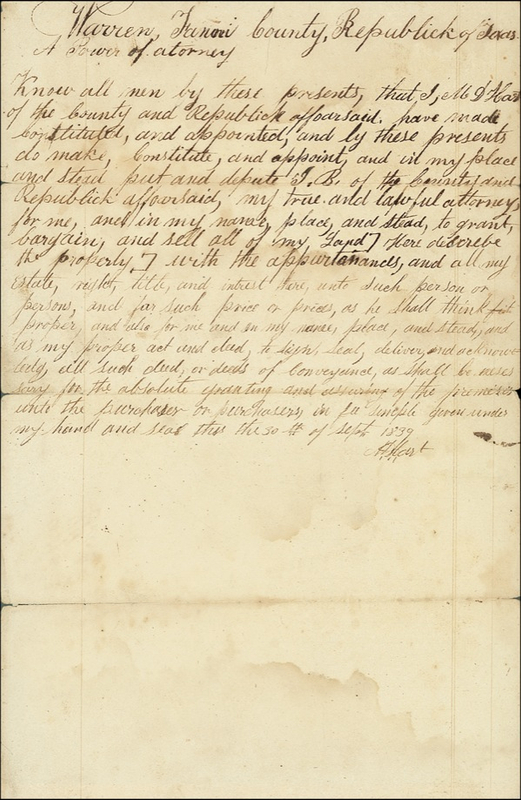 Warren, Fanin County, Republick of Texas
A Power of atorney
Know all men by these presents, that, I, M D Hart
of the County and Republick afforsaid. have made
Constituted, and appointed, and by these presents
do make, Constitute, and appoint, and in my place
and stead put and depute J. B. of the County and
Republick afforsaid, my true and lawful attorney,
for me, and in my name, place, and stead, to grant,
bargain, and sell all of my Land] Here discrebe
the property] with the appurtanances, and all my
Estate, right, title, and intrest there, unto such person or
persons, and for such price or prices, as he shall think fit
proper, and also for me and in my name, place, and stead, and
as my proper act and deed, to sign, seal, deliver, and acknow
ledg, all such deed, or deeds of Conveyance, as shall be neces
sary for the absolute granting and assuring of the premises
unto the purchaser or purchasers, in fee simple given under
my hand and seal this the 30 th of Sept 1839
Hart